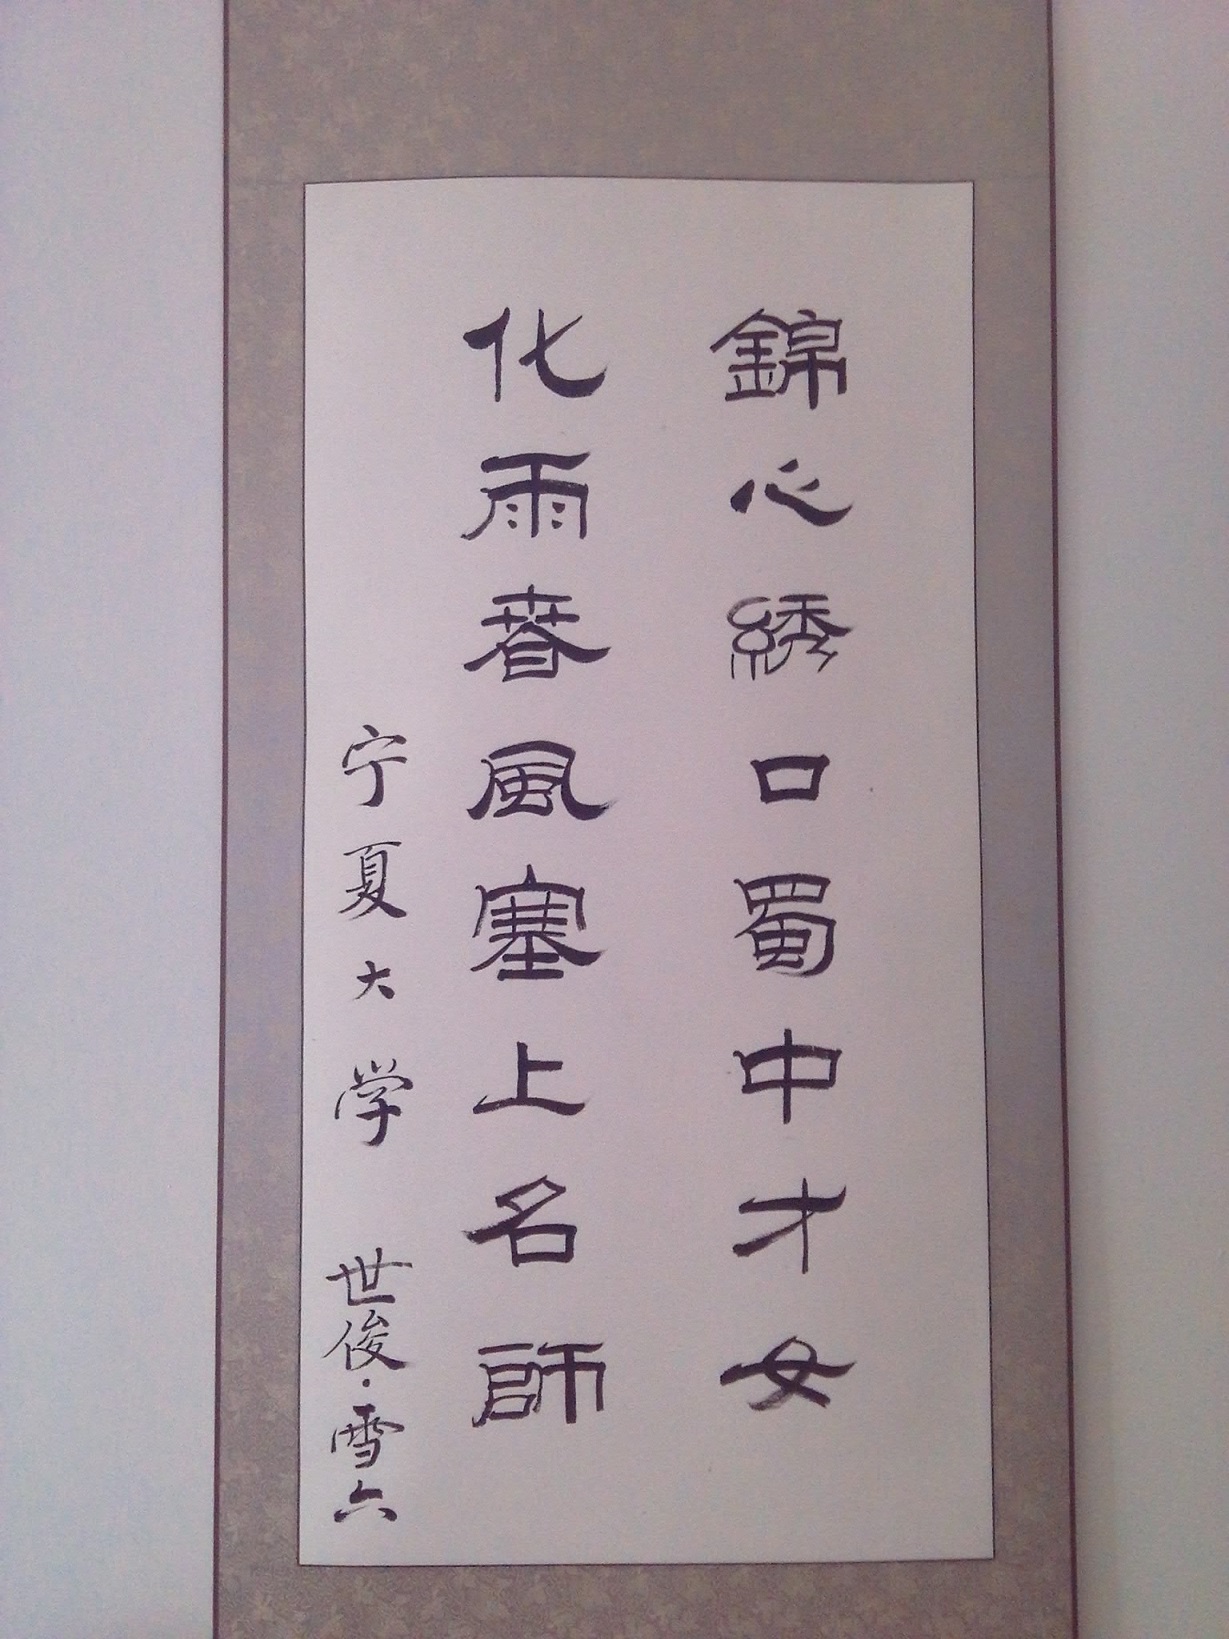 錦心綉口蜀中才女
化雨春風塞上名師
宁夏大学 世俊·雪六